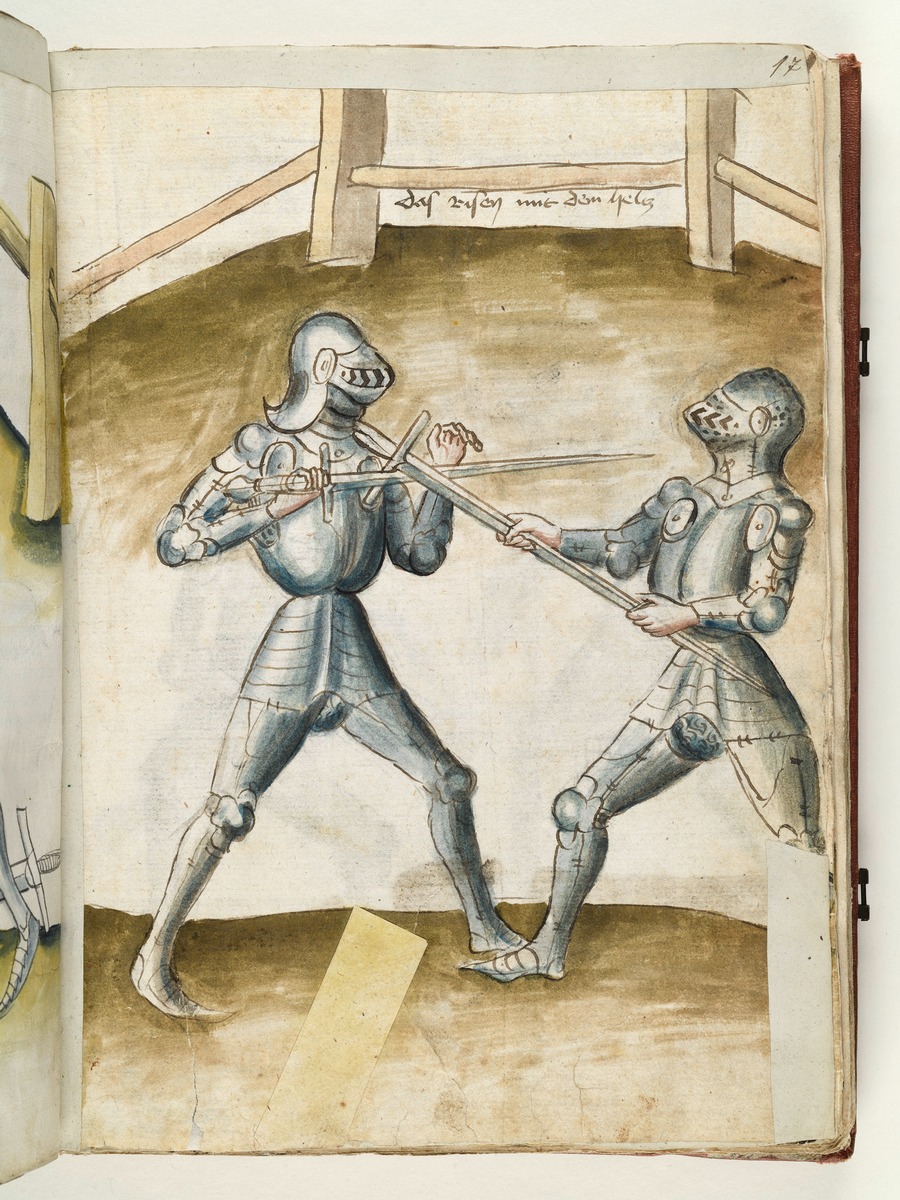 17
das risen mit dem helcz